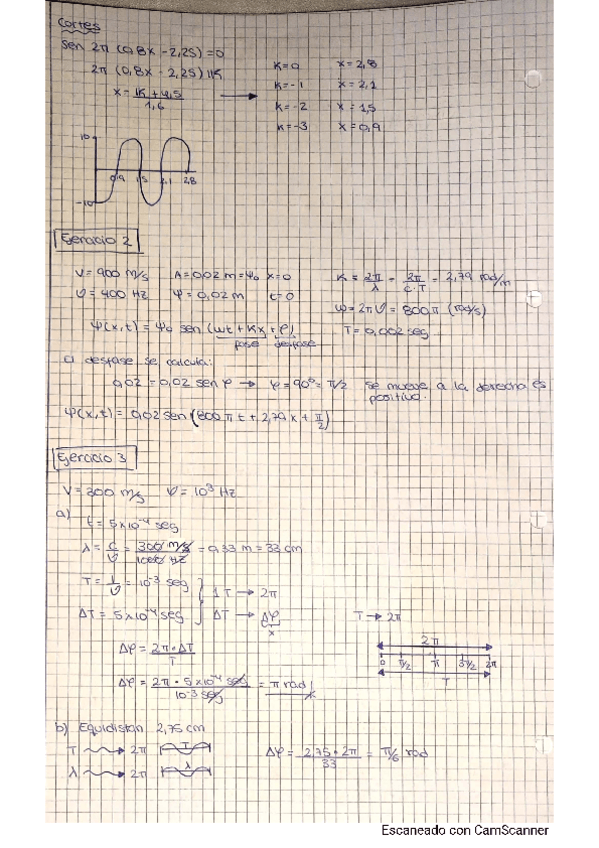 Cortes
sen 2π (0,8x - 2,25) = 0
2π (0,8x - 2,25) πK
x = 1K + 4,5 / 1,6
K=0 x = 2,8
K=-1 x = 2,2
K=-2 x = 1,5
K=-3 x = 0,9
10
0,9 1,5 2,1 2,8
-10
Ejercicio 2
V = 900 m/s A = 0,02 m = Ψ₀ x=0 K = 2π/λ = 2π/C·T = 2,79 rad/m
ν = 400 Hz Ψ = 0,02 m t=0 ω = 2πν = 800π (rad/s)
Ψ(x,t) = Ψ₀ sen (ωt + Kx + φ) T = 0,002 seg
fase desfase
a) desfase se calcula:
0,02 = 0,02 sen φ → φ = 90° = π/2 se mueve a la derecha es
positivo.
Ψ(x,t) = 0,02 sen (800πt + 2,79x + π/2)
Ejercicio 3
V = 300 m/s ν = 10³ Hz
a)
t = 5x10⁻⁴ seg
λ = C/ν = 300 m/s / 1000 Hz = 0,33 m = 33 cm
T = 1/ν = 10⁻³ seg 1T → 2π T → 2π
ΔT = 5x10⁻⁴ seg ΔT → Δφ
x
2π
0 π/2 π 3π/2 2π
T
Δφ = 2π · ΔT / T
Δφ = 2π · 5x10⁻⁴ seg / 10⁻³ seg = π rad
b) Equidistan 2,75 cm
T → 2π T Δφ = 2,75 · 2π / 33 = π/6 rad
λ → 2π λ
Escaneado con CamScanner